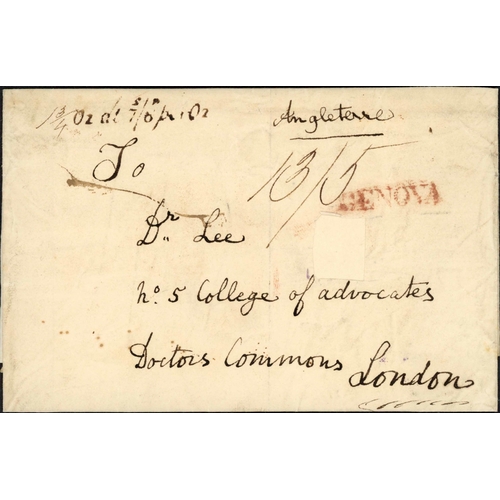 1¾ Oz at 7/8 pr Oz
Angleterre
13/5
GENOVA
To
Dr. Lee
no. 5 College of advocates
Doctors Commons
London